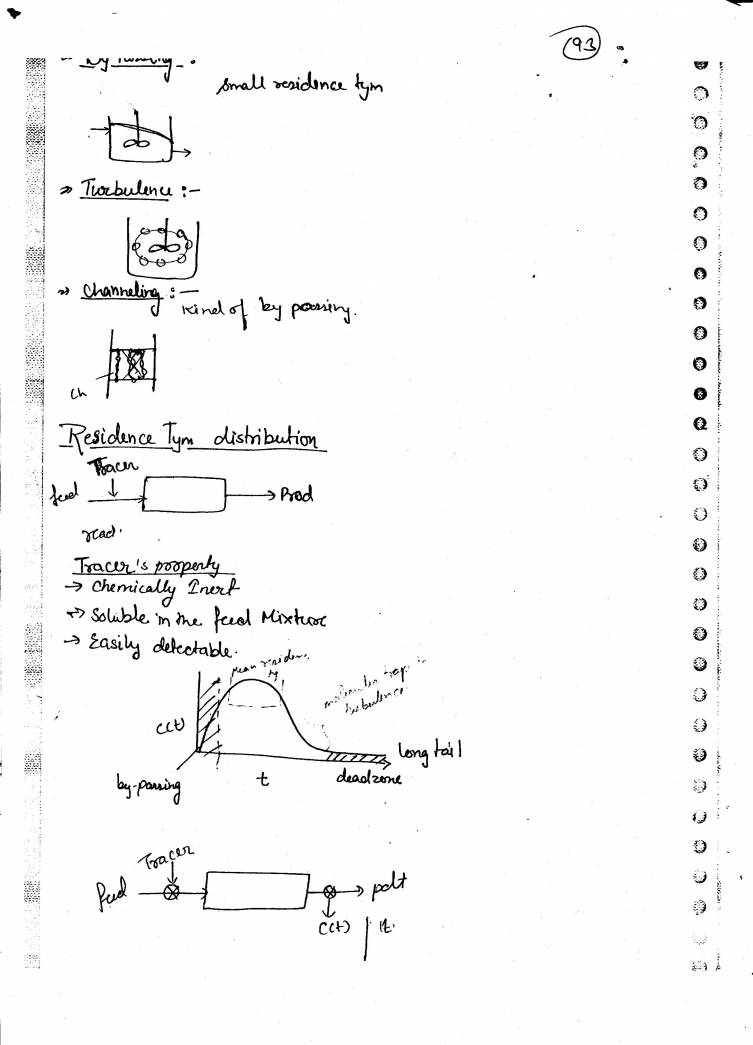 93
small residence tym
Turbulence :-
Channeling : —
Kind of by passing.
Ch
Residence Tym distribution
Tracer
feed
Prod
Tracer's property
→ Chemically Inert
→ Soluble in the feed Mixture
→ Easily detectable.
Mean residence
C(t)
turbulence
long tail
by-passing
t
deadzone
Tracer
feed
pdt
C(t)